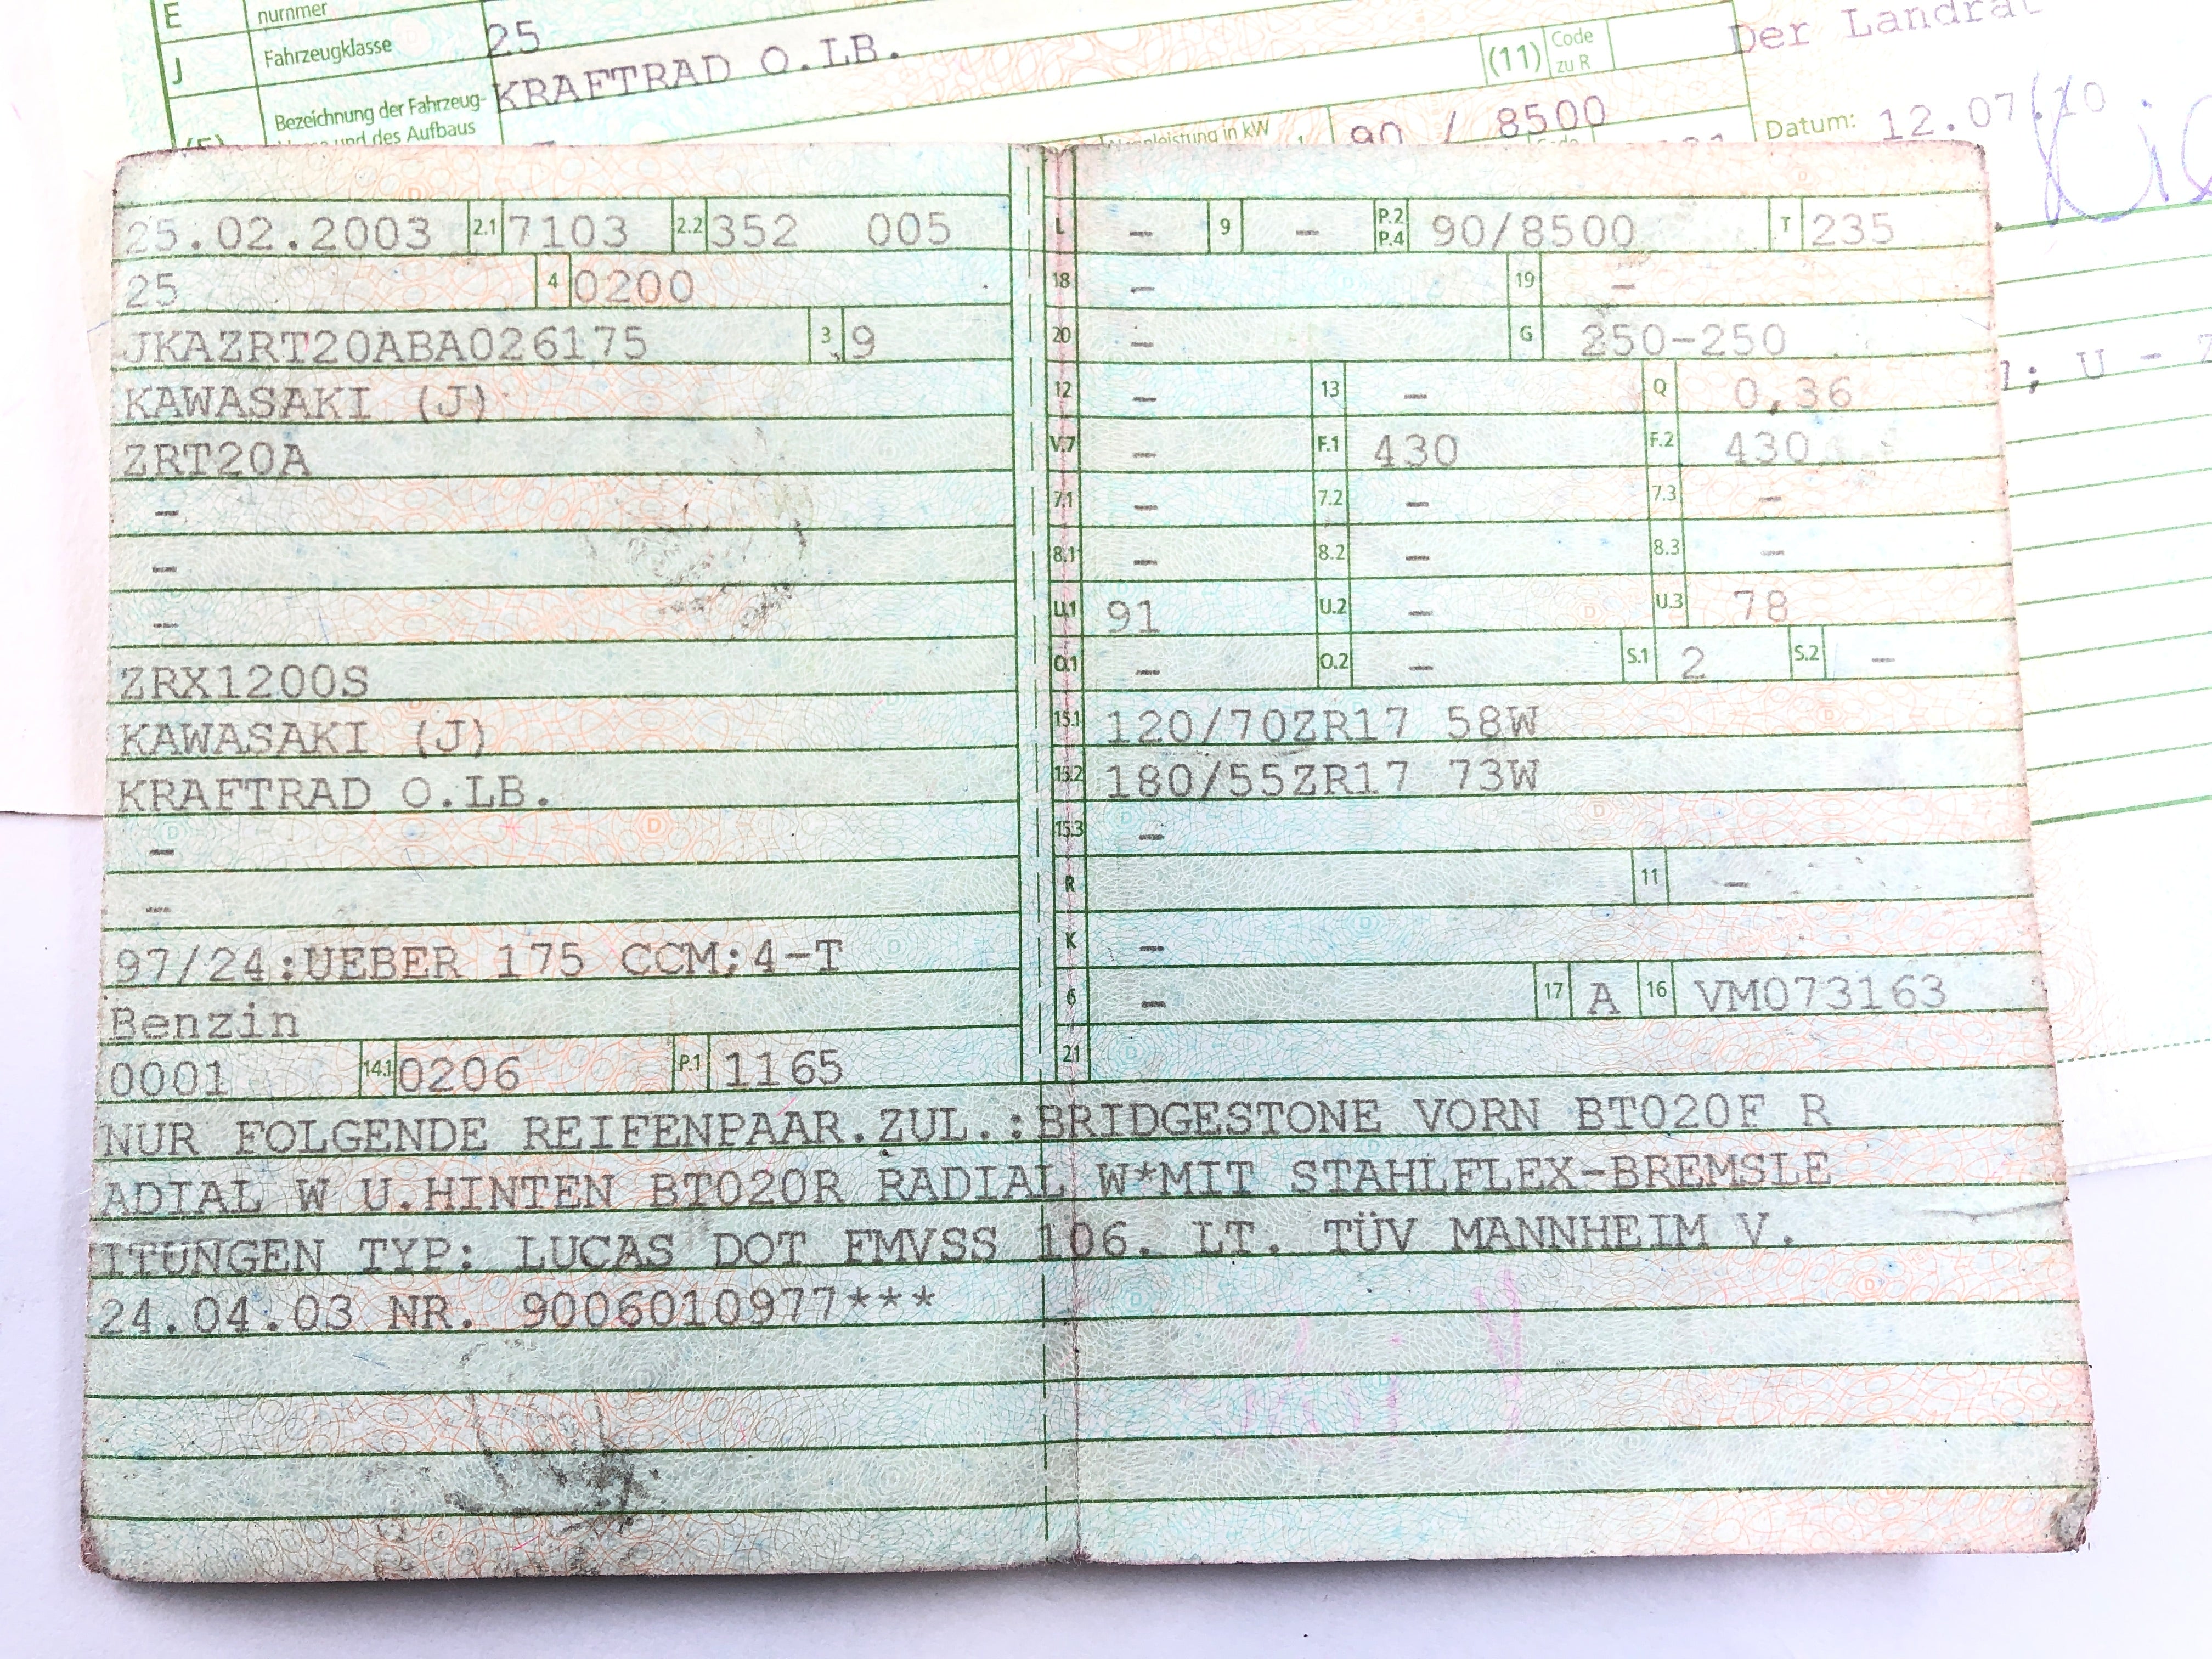 E nummer
J Fahrzeugklasse 25
KRAFTRAD O.LB. (11) Code zu R Der Landrat
Bezeichnung der Fahrzeug-
und des Aufbaus
Nennleistung in kW 90 / 8500
Datum: 12.07.10
25.02.2003 2.1 7103 2.2 352 005
25 4 0200
JKAZRT20ABA026175 3 9
KAWASAKI (J)
ZRT20A
–
–
–
ZRX1200S
KAWASAKI (J)
KRAFTRAD O.LB.
–
–
97/24:UEBER 175 CCM;4-T
Benzin
0001 14.1 0206 P.1 1165
L – 9 – P.2 P.4 90/8500 T 235
18 – 19 –
20 – G 250-250
12 – 13 – Q 0,36
V.7 – F.1 430 F.2 430
7.1 – 7.2 – 7.3 –
8.1 – 8.2 – 8.3 –
U.1 91 U.2 – U.3 78
O.1 – O.2 – S.1 2 S.2 –
15.1 120/70ZR17 58W
15.2 180/55ZR17 73W
15.3 –
R 11 –
K –
6 – 17 A 16 VM073163
21
NUR FOLGENDE REIFENPAAR.ZUL.:BRIDGESTONE VORN BT020F R
ADIAL W U.HINTEN BT020R RADIAL W*MIT STAHLFLEX-BREMSLE
ITUNGEN TYP: LUCAS DOT FMVSS 106. LT. TÜV MANNHEIM V.
24.04.03 NR. 9006010977***
; U –